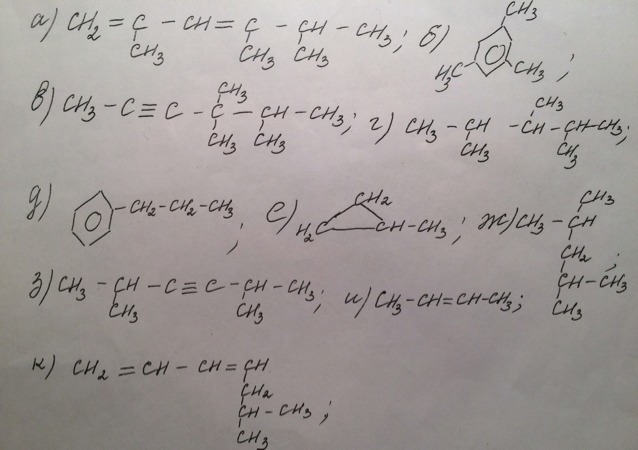 а) CH2 = C - CH = C - CH - CH3; б) CH3
CH3 CH3 CH3 H3C CH3 ;
CH3
в) CH3 - C ≡ C - C - CH - CH3; г) CH3 - CH - CH - CH - CH3;
CH3 CH3 CH3 CH3 CH3
д) CH2 - CH2 - CH3 ; е) CH2 H2C CH - CH3 ; ж) CH3 - CH
CH3
CH2
з) CH3 - CH - C ≡ C - CH - CH3; и) CH3 - CH = CH - CH3; CH - CH3 ;
CH3 CH3 CH3
к) CH2 = CH - CH = CH
CH2
CH - CH3 ;
CH3